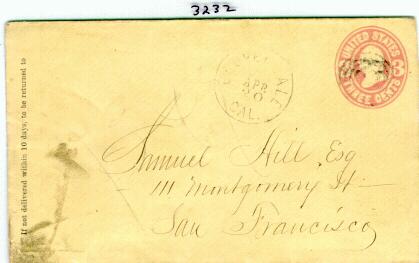 3232
If not delivered within 10 days, to be returned to
APR
30
CAL.
UNITED STATES
3
THREE CENTS
Samuel Hill Esq
111 Montgomery St
San Francisco